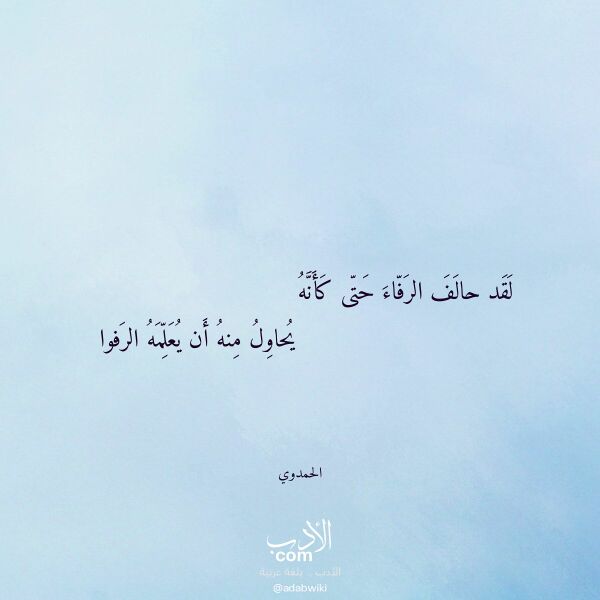 لَقَد حالَفَ الرَفّاءَ حَتّى كَأَنَّهُ
يُحاوِلُ مِنهُ أَن يُعَلِّمَهُ الرَفوا
الحمدوي
الأدب
com
الأدب .. بلغة عربية
@adabwiki